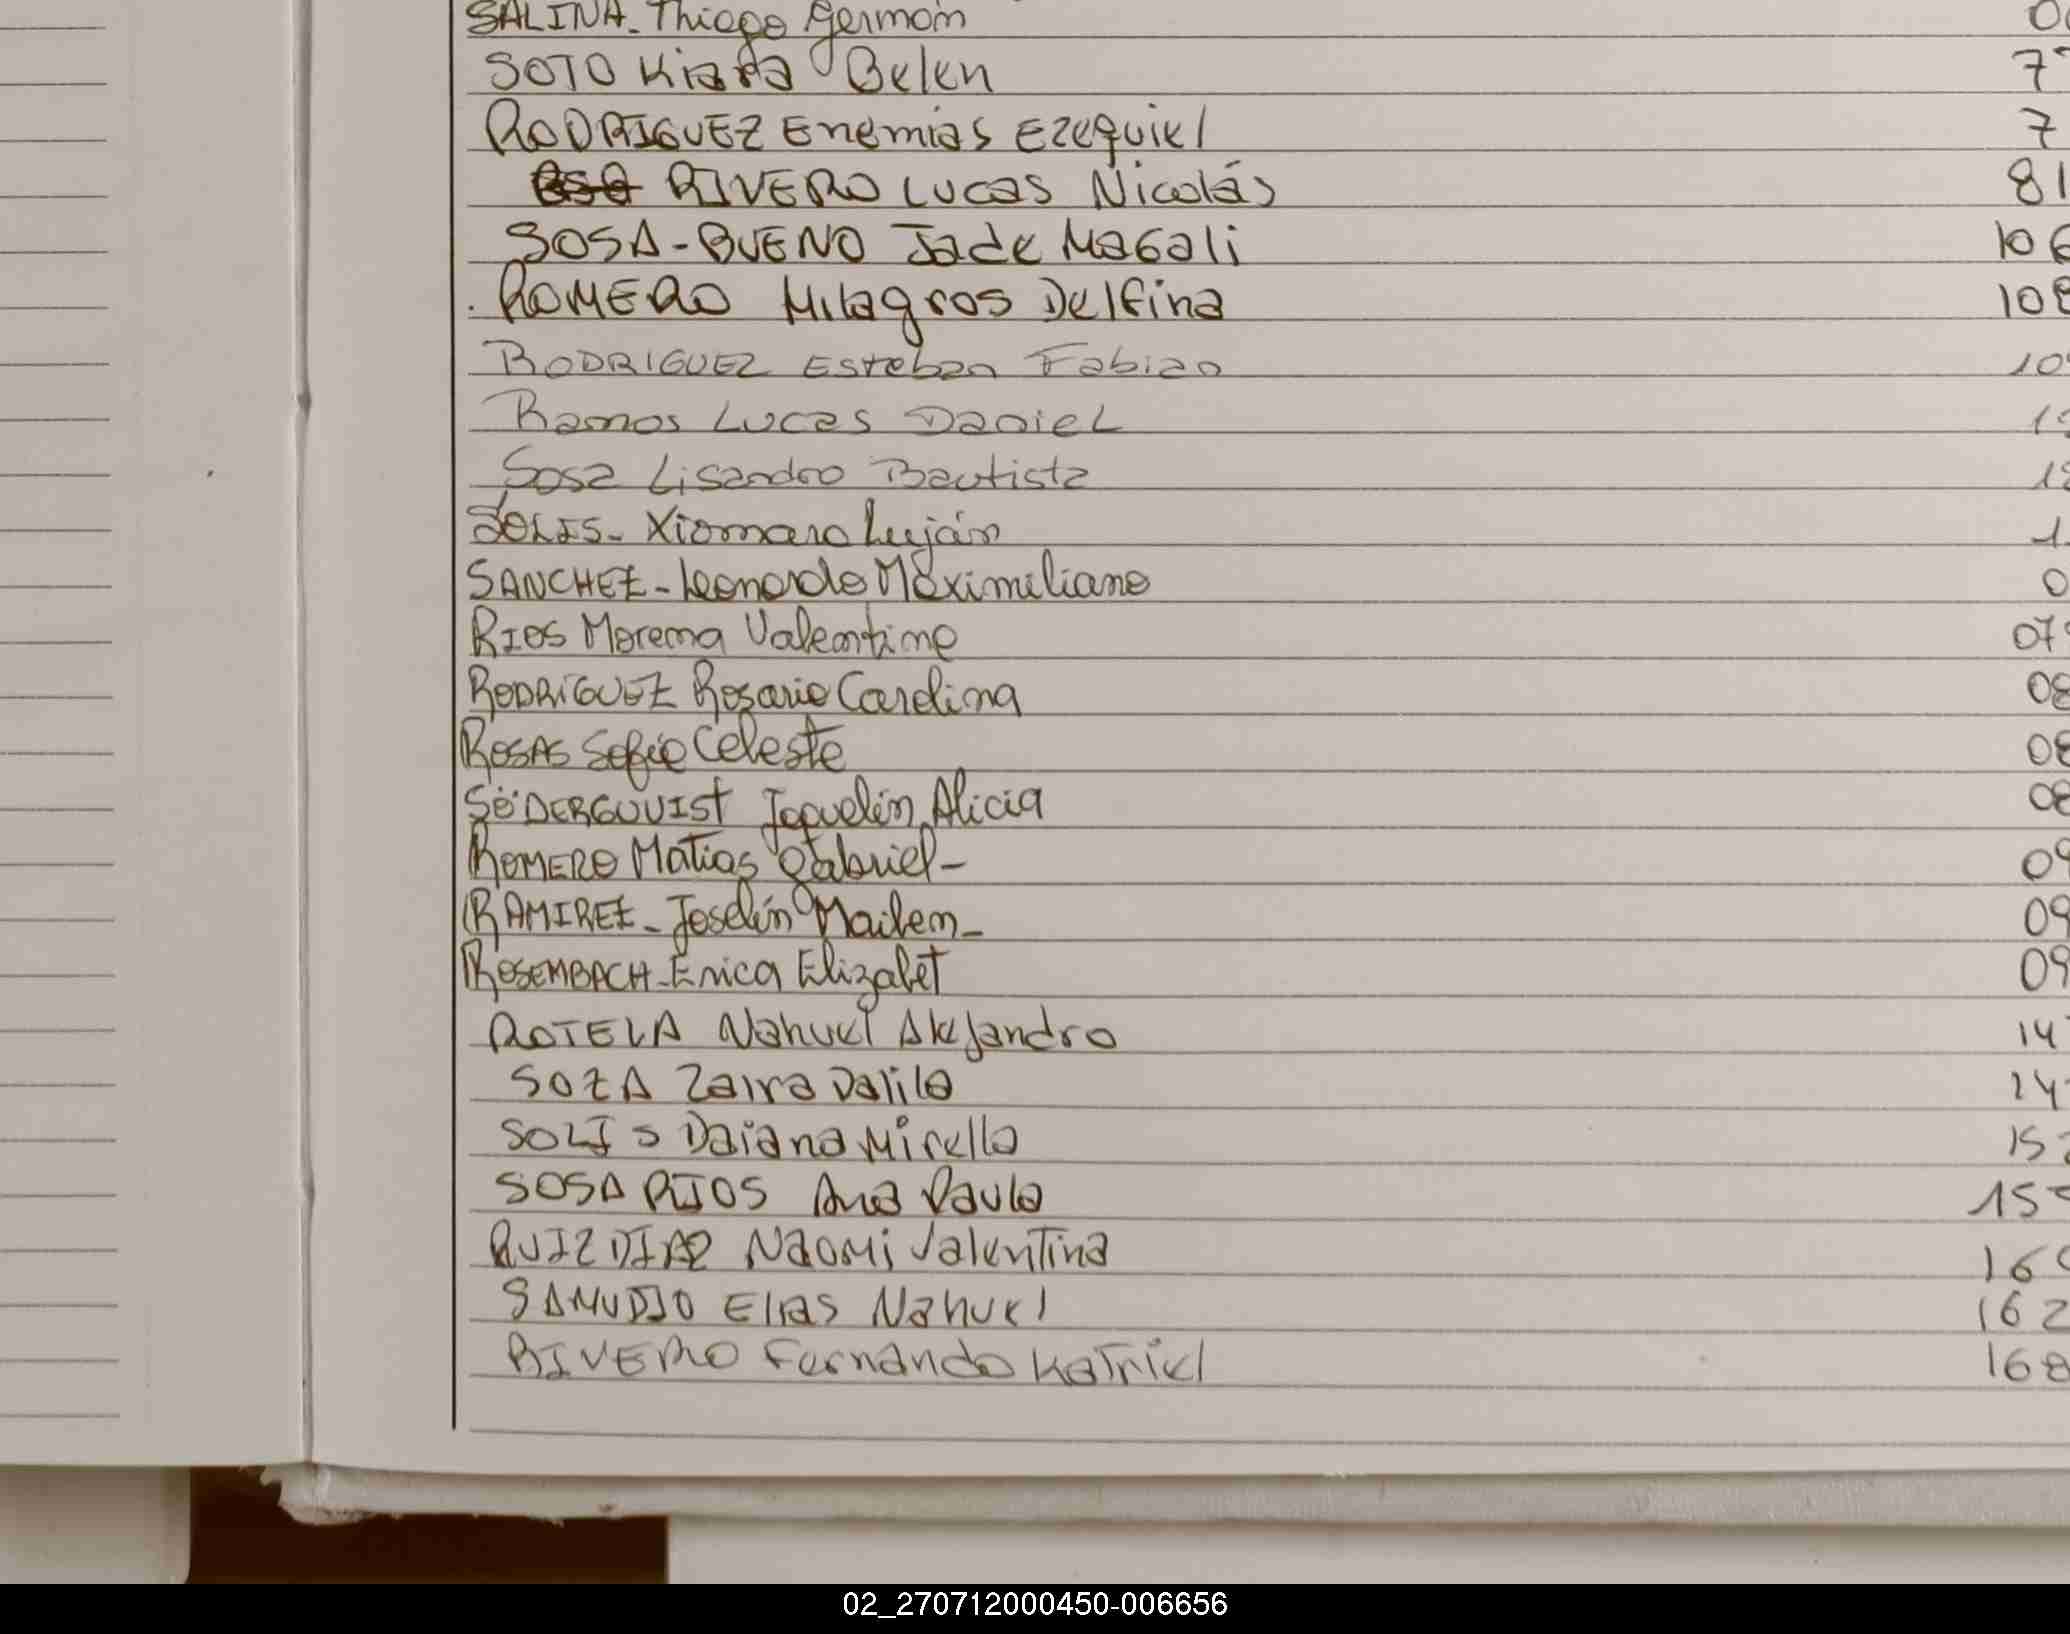 SALINA - Thiago Germán 0
SOTO Kiara Belen 77
RODRIGUEZ Enemias Ezequiel 7
RIVERO Lucas Nicolás 81
SOSA-BUENO Jade Magali 106
ROMERO Milagros Delfina 108
RODRIGUEZ Esteban Fabian 10
Ramos Lucas Daniel 1
Sosa Lisandro Bautista 1
SOLIS - Xiomara Luján 1
SANCHEZ - Leonardo Maximiliano 0
RIOS Morena Valentina 07
RODRÍGUEZ Rosario Carolina 08
ROSAS Sofía Celeste 08
SÖDERGUVIST Jaquelín Alicia 08
ROMERO Matias Gabriel - 09
RAMIREZ - Joselín Mailen - 09
ROSEMBACH - Erica Elizabet 09
ROTELA Nahuel Alejandro 14
SOZA Zaira Dalila 14
SOLIS Daiana Mirella 15
SOSA RIOS Ana Paula 15
RUIZ DIAZ Naomi Valentina 16
SAMUDIO Elias Nahuel 162
RIVERO Fernando Katriel 168
02_270712000450-006656